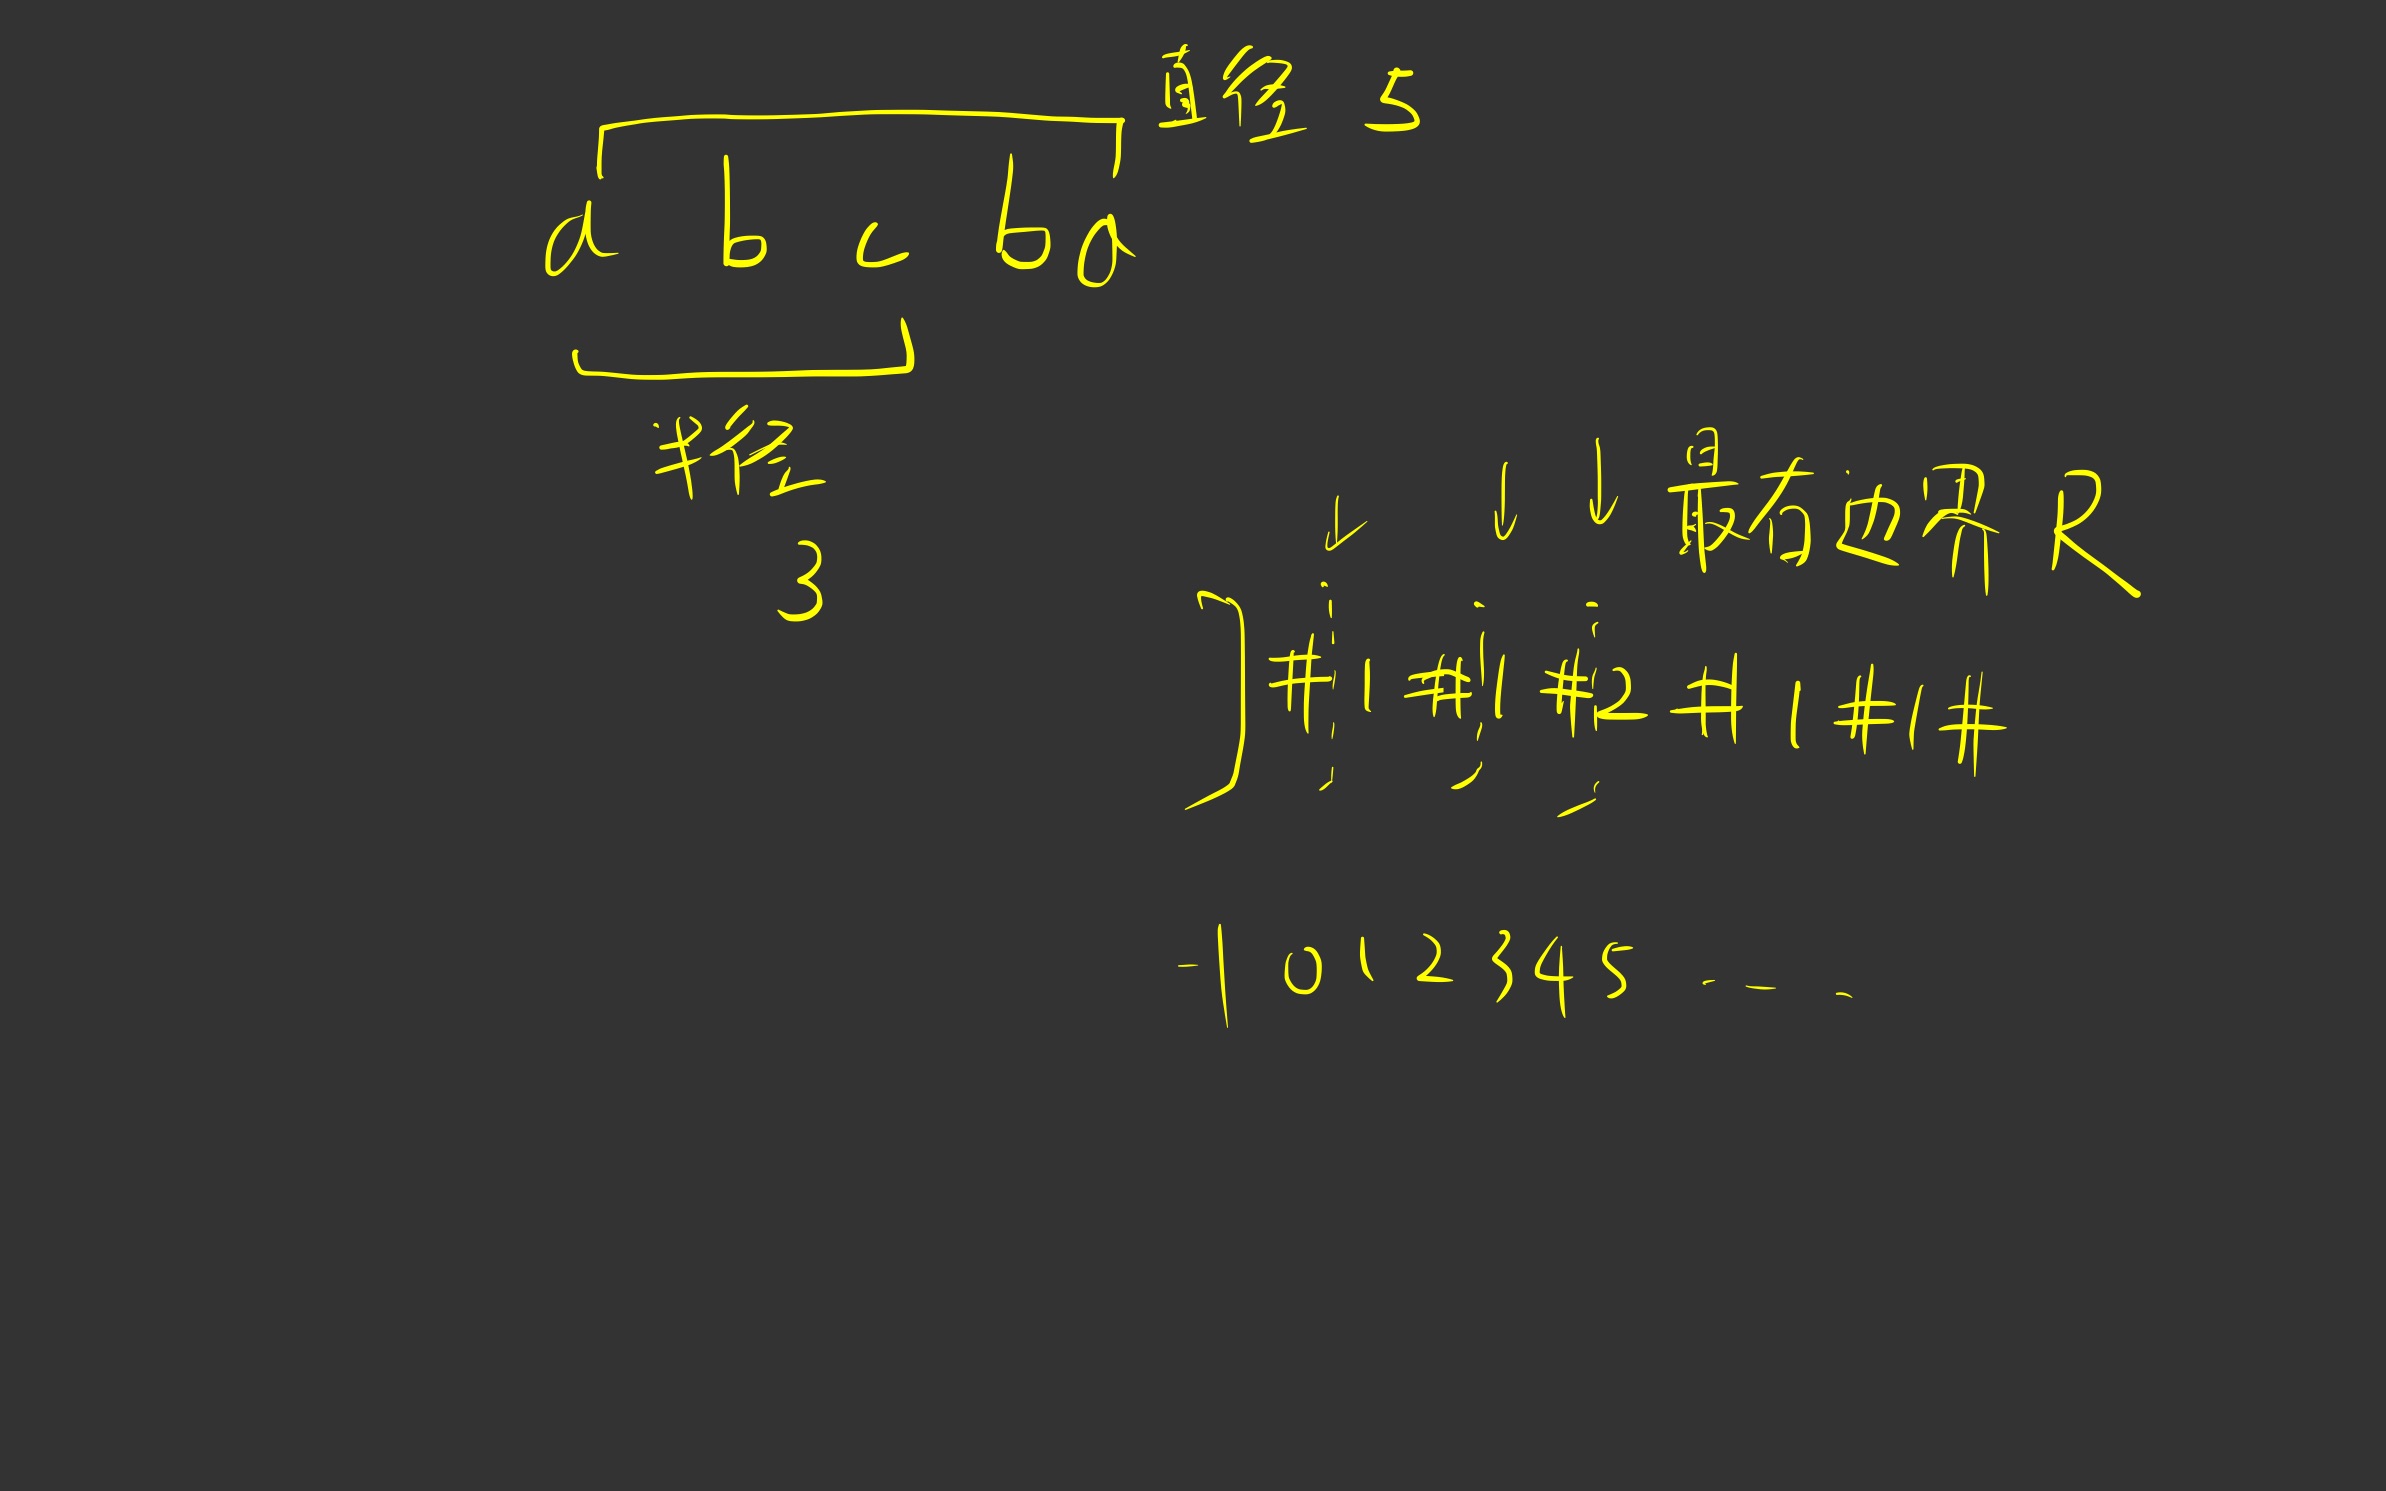 直径 5
a b c b a
半径
3
最右边界 R
# 1 # 1 # 2 # 1 # 1 #
-1 0 1 2 3 4 5 ......